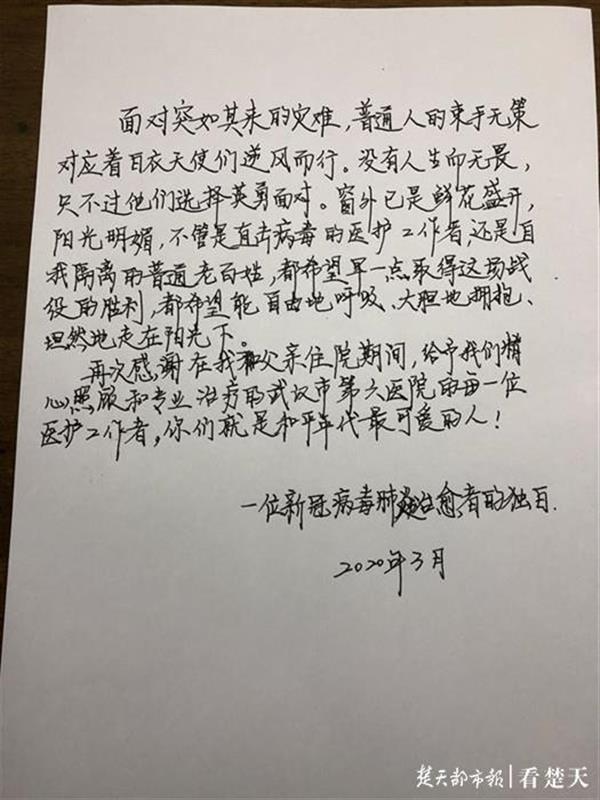 面对突如其来的灾难，普通人的束手无策
对应着白衣天使们逆风而行。没有人生而无畏，
只不过他们选择英勇面对。窗外已是鲜花盛开，
阳光明媚，不管是直击病毒的医护工作者，还是自
我隔离的普通老百姓，都希望早一点取得这场战
役的胜利，都希望能自由地呼吸、大胆地拥抱、
坦然地走在阳光下。
再次感谢在我和父亲住院期间，给予我们精
心照顾和专业治疗的武汉市第六医院的每一位
医护工作者，你们就是和平年代最可爱的人！
一位新冠病毒肺炎治愈者的独白.
2020年3月
楚天都市报|看楚天